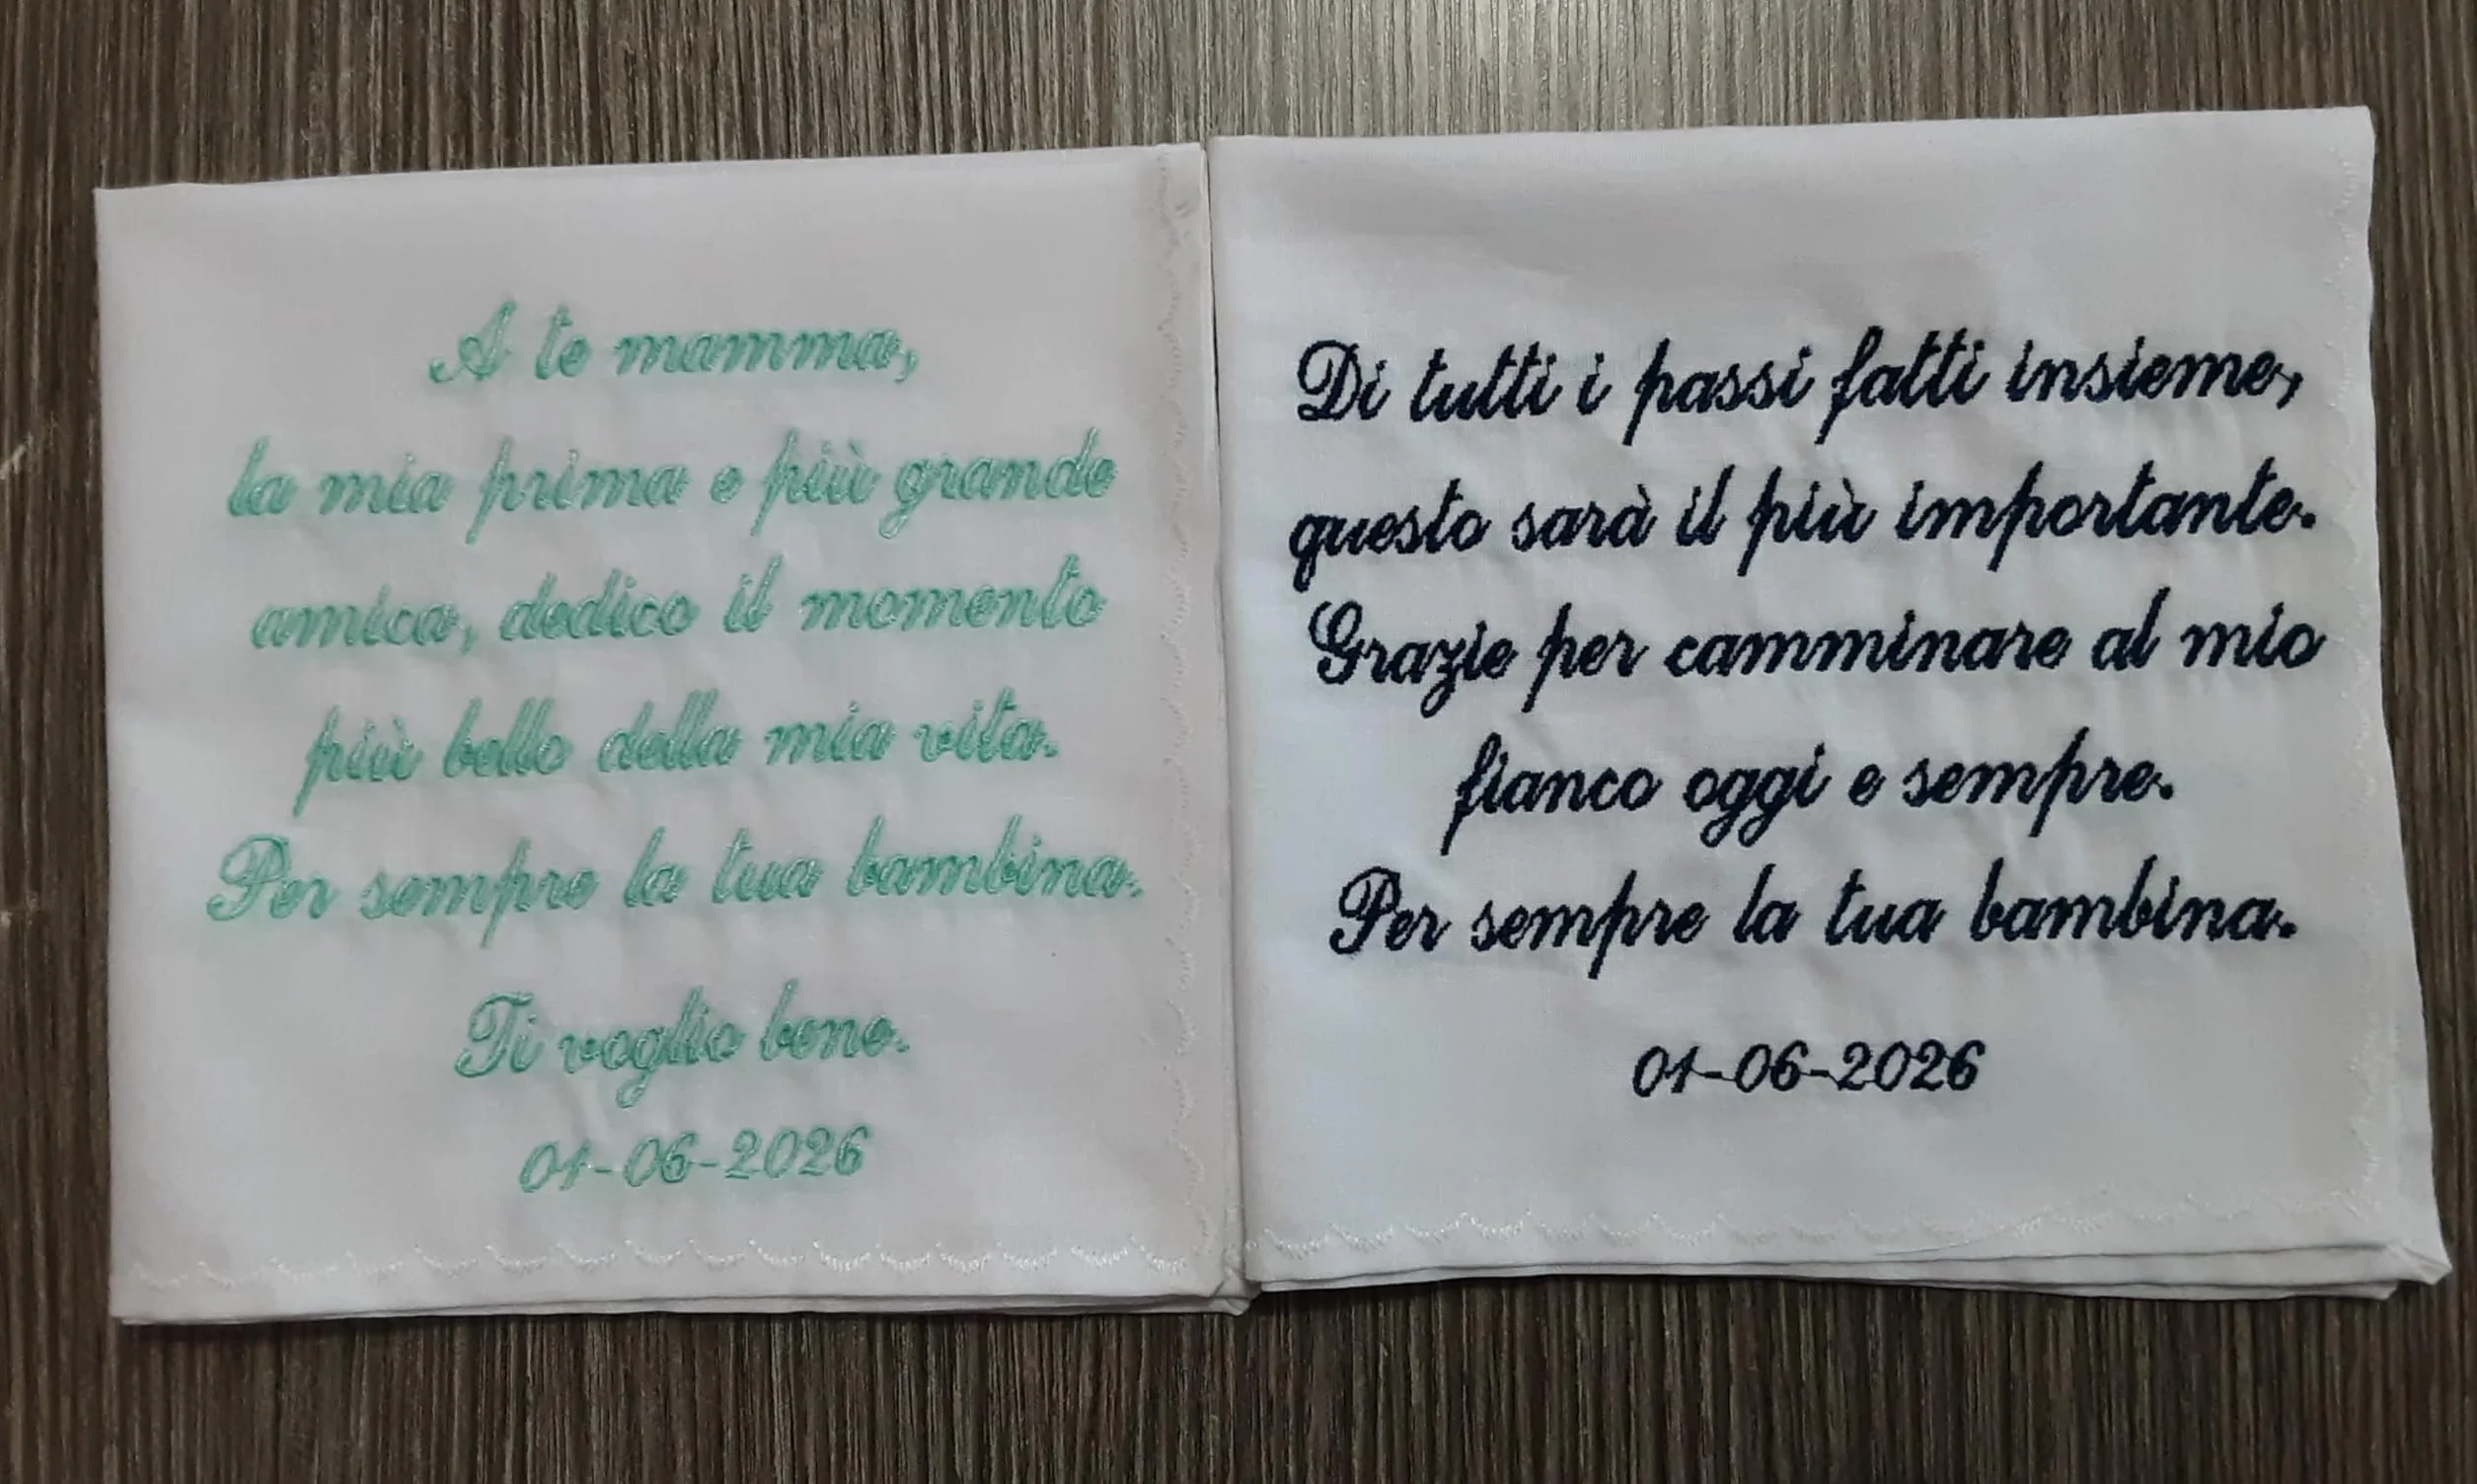 A te mamma,
la mia prima e più grande
amica, dedico il momento
più bello della mia vita.
Per sempre la tua bambina.
Ti voglio bene.
01-06-2026
Di tutti i passi fatti insieme,
questo sarà il più importante.
Grazie per camminare al mio
fianco oggi e sempre.
Per sempre la tua bambina.
01-06-2026